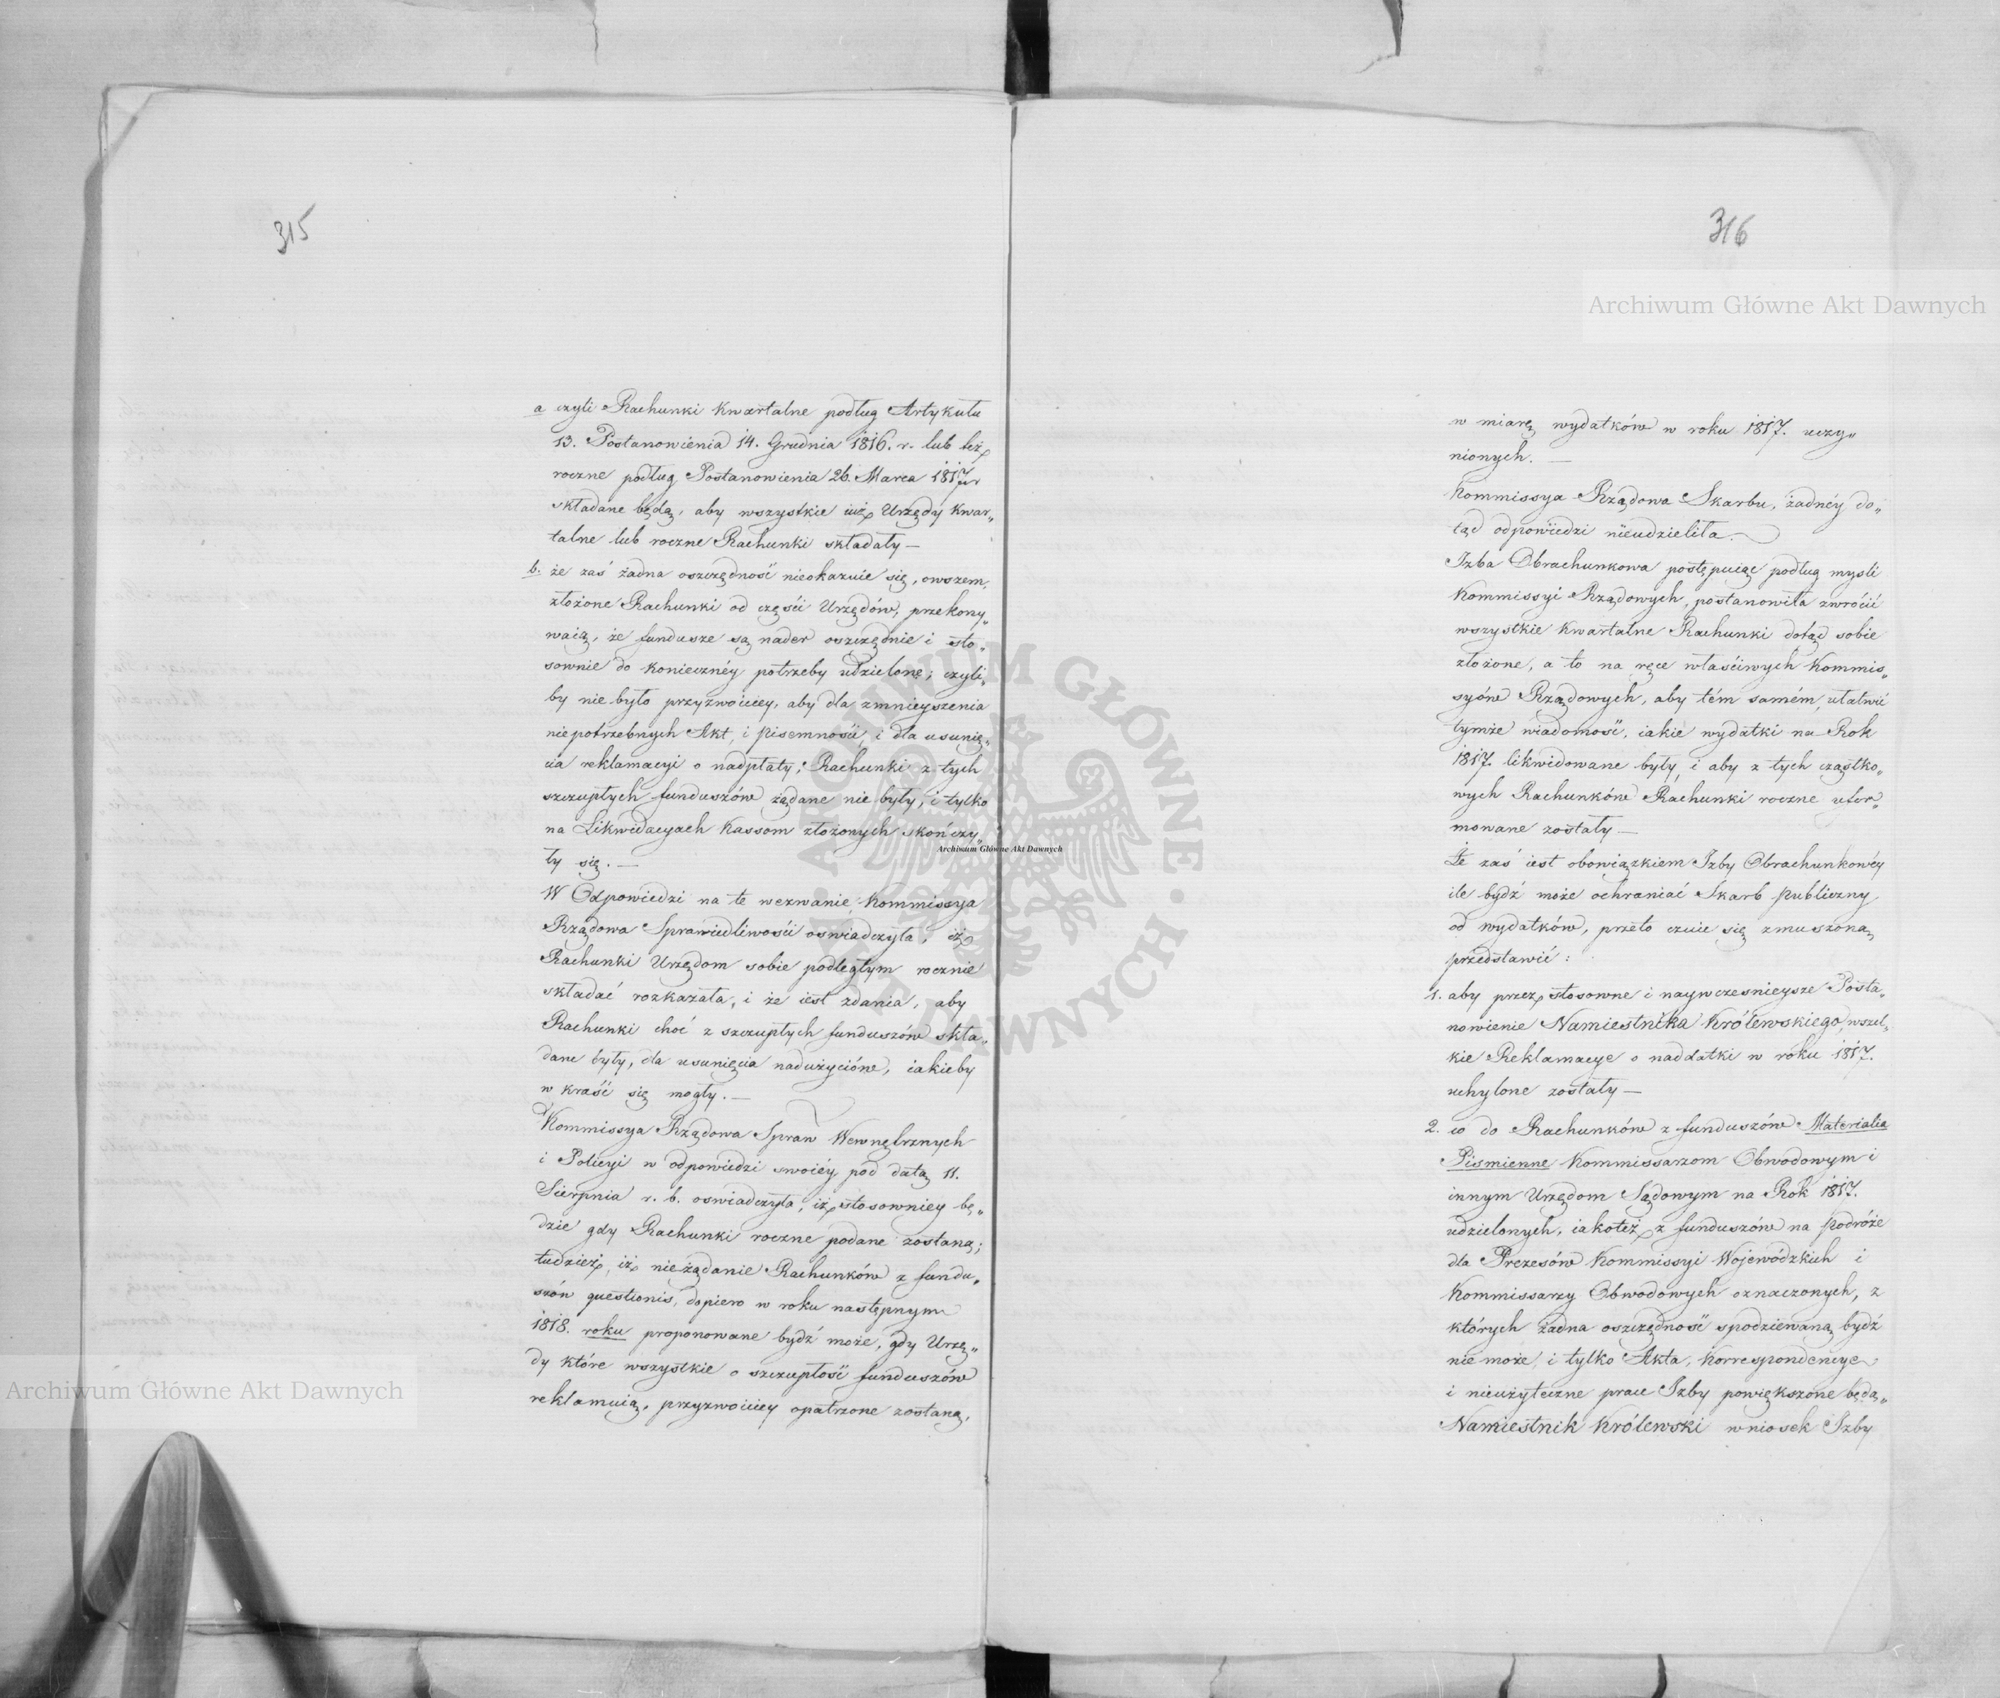 315
a czyli Rachunki Kwartalne podług Artykułu
13. Postanowienia 14. Grudnia 1816. r. lub też
roczne podług Postanowienia 26. Marca 1817 r
składane będą, aby wszystkie iuż Urzędy Kwar„
talne lub roczne Rachunki składały —
b. że zaś żadna oszczędność nieokazuie się, owszem,
złożone Rachunki od części Urzędów, przekony„
waią, że fundusze są nader oszczędnie i sto„
sownie do konieczney potrzeby udzielone; czyli„
by nie było przyzwoiciey, aby dla zmnieyszenia
niepotrzebnych Akt, i pisemności, i dla usunię„
cia reklamacyi o nadpłaty; Rachunki z tych
szczupłych funduszów żądane nie były, i tylko
na Likwidacyach Kassom złożonych skończy„
ły się. —
W Odpowiedzi na te wezwanie Kommissya
Rządowa Sprawiedliwości oswiadczyła, iż
Rachunki Urzędom sobie podległym rocznie
składać rozkazała, i że iest zdania, aby
Rachunki choć z szczupłych funduszów skła„
dane były, dla usunięcia nadużyciów, iakieby
w kraść się mogły. —
Kommissya Rządowa Spraw Wewnętrznych
i Policyi w odpowiedzi swoiéy pod datą 11.
Sierpnia r. b. oswiadczyła, iż stosowniey bę„
dzie gdy Rachunki roczne podane zostaną;
tudzież, iż nieżądanie Rachunków z fundu„
szów questionis, dopiero w roku następnym
1818. roku proponowane bydź może, gdy Urzę„
dy które wszystkie o szczupłość funduszów
reklamuią, przyzwoiciey opatrzone zostaną,
316
w miarę wydatków w roku 1817. uczy„
nionych. —
Kommissya Rządowa Skarbu, żadnéy do„
tąd odpowiedzi nieudzieliła.
Izba Obrachunkowa postępuiąc podług mysli
Kommissyi Rządowych, postanowiła zwrócić
wszystkie Kwartalne Rachunki dotąd sobie
złożone, a to na ręce właściwych Kommis„
syów Rządowych, aby tém samém, ułatwić
tymże wiadomość, iakie wydatki na Rok
1817. likwidowane były, i aby z tych cząstko„
wych Rachunków Rachunki roczne ufor„
mowane zostały —
Że zaś iest obowiązkiem Izby Obrachunkowéy
ile bydź może ochraniać Skarb publiczny
od wydatków, przeto czuie się zmuszoną
przedstawić:
1. aby przez stosowne i naywczesnieysze Posta„
nowienie Namiestnika Królewskiego, wszel„
kie Reklamacye o naddatki w roku 1817.
uchylone zostały —
2. co do Rachunków z funduszów Materialia
Pismienne Kommissarzom Obwodowym i
innym Urzędom Sądowym na Rok 1817.
udzielonych, iakoteż z funduszów na podróże
dla Prezesów Kommissyi Wojewódzkich i
Kommissarzy Obwodowych oznaczonych, z
których żadna oszczędność spodziewaną bydź
nie może, i tylko Akta, Korrespondencye
i nieużyteczne prace Izby powiększone będą„
Namiestnik Królewski wniosek Izby
Archiwum Główne Akt Dawnych
Archiwum Główne Akt Dawnych
Archiwum Główne Akt Dawnych
ARCHIWUM GŁÓWNE AKT DAWNYCH